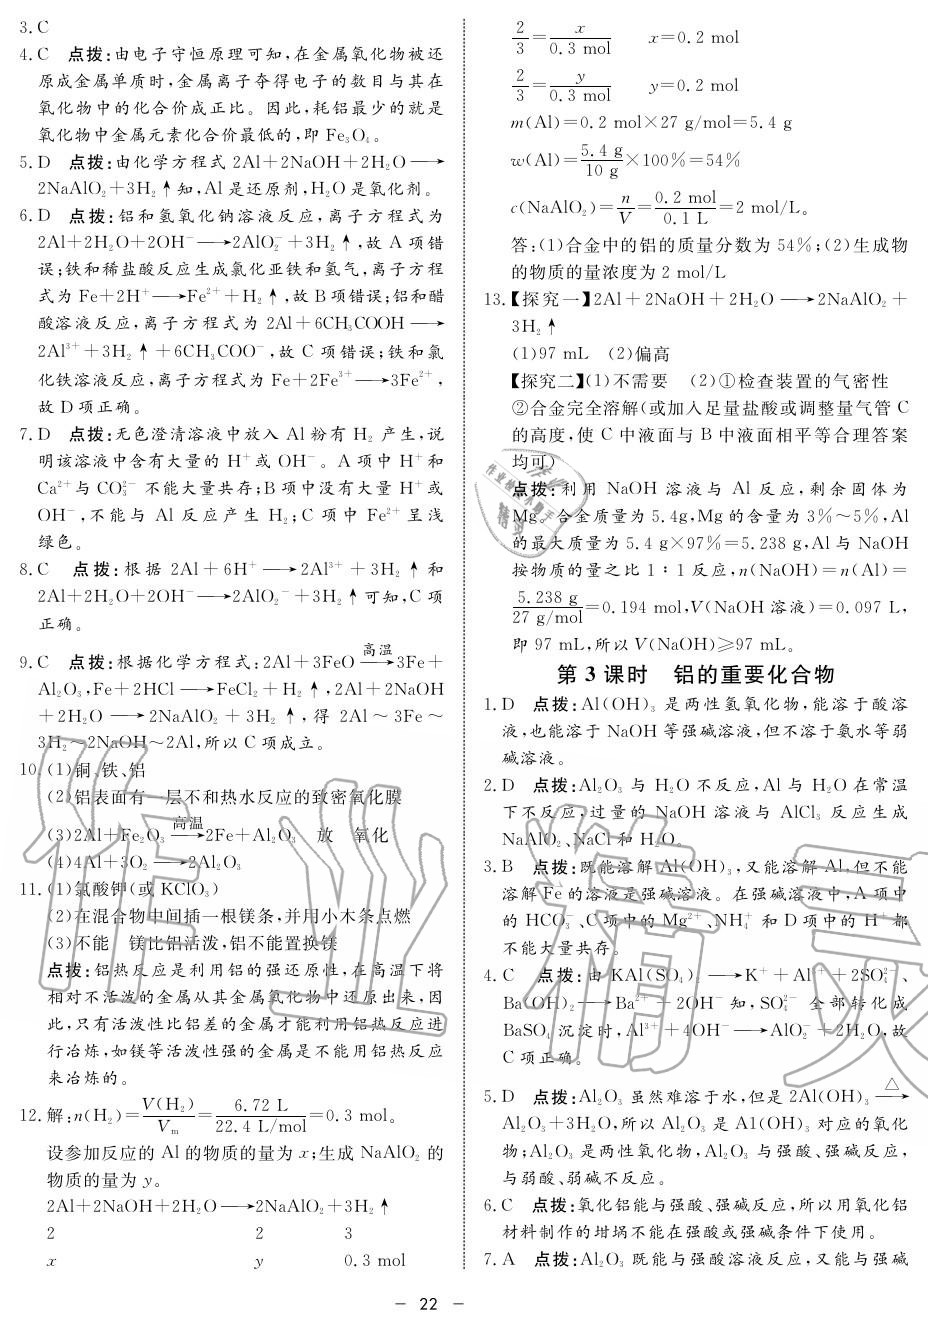 3. C
4. C 点拨:由电子守恒原理可知,在金属氧化物被还
原成金属单质时,金属离子夺得电子的数目与其在
氧化物中的化合价成正比。因此,耗铝最少的就是
氧化物中金属元素化合价最低的,即 Fe₃O₄。
5. D 点拨:由化学方程式 2Al+2NaOH+2H₂O⟶
2NaAlO₂+3H₂↑知,Al 是还原剂,H₂O 是氧化剂。
6. D 点拨:铝和氢氧化钠溶液反应,离子方程式为
2Al+2H₂O+2OH⁻⟶2AlO₂⁻+3H₂↑,故 A 项错
误;铁和稀盐酸反应生成氯化亚铁和氢气,离子方程
式为 Fe+2H⁺⟶Fe²⁺+H₂↑,故 B 项错误;铝和醋
酸溶液反应,离子方程式为 2Al+6CH₃COOH⟶
2Al³⁺+3H₂↑+6CH₃COO⁻,故 C 项错误;铁和氯
化铁溶液反应,离子方程式为 Fe+2Fe³⁺⟶3Fe²⁺,
故 D 项正确。
7. D 点拨:无色澄清溶液中放入 Al 粉有 H₂ 产生,说
明该溶液中含有大量的 H⁺或 OH⁻。A 项中 H⁺和
Ca²⁺与 CO₃²⁻ 不能大量共存;B 项中没有大量 H⁺或
OH⁻,不能与 Al 反应产生 H₂;C 项中 Fe²⁺呈浅
绿色。
8. C 点拨:根据 2Al+6H⁺⟶2Al³⁺+3H₂↑和
2Al+2H₂O+2OH⁻⟶2AlO₂⁻+3H₂↑可知,C 项
正确。
9. C 点拨:根据化学方程式:2Al+3FeO高温⟶3Fe+
Al₂O₃,Fe+2HCl⟶FeCl₂+H₂↑,2Al+2NaOH
+2H₂O⟶2NaAlO₂+3H₂↑,得 2Al~3Fe~
3H₂~2NaOH~2Al,所以 C 项成立。
10. (1)铜、铁、铝
(2)铝表面有一层不和热水反应的致密氧化膜
(3)2Al+Fe₂O₃高温⟶2Fe+Al₂O₃ 放 氧化
(4)4Al+3O₂⟶2Al₂O₃
11. (1)氯酸钾(或 KClO₃)
(2)在混合物中间插一根镁条,并用小木条点燃
(3)不能 镁比铝活泼,铝不能置换镁
点拨:铝热反应是利用铝的强还原性,在高温下将
相对不活泼的金属从其金属氧化物中还原出来,因
此,只有活泼性比铝差的金属才能利用铝热反应进
行冶炼,如镁等活泼性强的金属是不能用铝热反应
来冶炼的。
12. 解:n(H₂)=V(H₂)/Vₘ=6.72 L/22.4 L/mol=0.3 mol。
设参加反应的 Al 的物质的量为 x;生成 NaAlO₂ 的
物质的量为 y。
2Al+2NaOH+2H₂O⟶2NaAlO₂+3H₂↑
2 2 3
x y 0.3 mol
2/3=x/0.3 mol x=0.2 mol
2/3=y/0.3 mol y=0.2 mol
m(Al)=0.2 mol×27 g/mol=5.4 g
w(Al)=5.4 g/10 g×100%=54%
c(NaAlO₂)=n/V=0.2 mol/0.1 L=2 mol/L。
答:(1)合金中的铝的质量分数为 54%;(2)生成物
的物质的量浓度为 2 mol/L
13.【探究一】2Al+2NaOH+2H₂O⟶2NaAlO₂+
3H₂↑
(1)97 mL (2)偏高
【探究二】(1)不需要 (2)①检查装置的气密性
②合金完全溶解(或加入足量盐酸或调整量气管 C
的高度,使 C 中液面与 B 中液面相平等合理答案
均可)
点拨:利用 NaOH 溶液与 Al 反应,剩余固体为
Mg。合金质量为 5.4g,Mg 的含量为 3%~5%,Al
的最大质量为 5.4 g×97%=5.238 g,Al 与 NaOH
按物质的量之比 1∶1 反应,n(NaOH)=n(Al)=
5.238 g/27 g/mol=0.194 mol,V(NaOH 溶液)=0.097 L,
即 97 mL,所以 V(NaOH)≥97 mL。
第 3 课时 铝的重要化合物
1. D 点拨:Al(OH)₃ 是两性氢氧化物,能溶于酸溶
液,也能溶于 NaOH 等强碱溶液,但不溶于氨水等弱
碱溶液。
2. D 点拨:Al₂O₃ 与 H₂O 不反应,Al 与 H₂O 在常温
下不反应,过量的 NaOH 溶液与 AlCl₃ 反应生成
NaAlO₂、NaCl 和 H₂O。
3. B 点拨:既能溶解 Al(OH)₃,又能溶解 Al,但不能
溶解 Fe 的溶液是强碱溶液。在强碱溶液中,A 项中
的 HCO₃⁻、C 项中的 Mg²⁺、NH₄⁺ 和 D 项中的 H⁺都
不能大量共存。
4. C 点拨:由 KAl(SO₄)₂⟶K⁺+Al³⁺+2SO₄²⁻、
Ba(OH)₂⟶Ba²⁺+2OH⁻知,SO₄²⁻ 全部转化成
BaSO₄ 沉淀时,Al³⁺+4OH⁻⟶AlO₂⁻+2H₂O,故
C 项正确。
5. D 点拨:Al₂O₃ 虽然难溶于水,但是 2Al(OH)₃△⟶
Al₂O₃+3H₂O,所以 Al₂O₃ 是 Al(OH)₃ 对应的氧化
物;Al₂O₃ 是两性氧化物,Al₂O₃ 与强酸、强碱反应,
与弱酸、弱碱不反应。
6. C 点拨:氧化铝能与强酸、强碱反应,所以用氧化铝
材料制作的坩埚不能在强酸或强碱条件下使用。
7. A 点拨:Al₂O₃ 既能与强酸溶液反应,又能与强碱
— 22 —
作业精灵